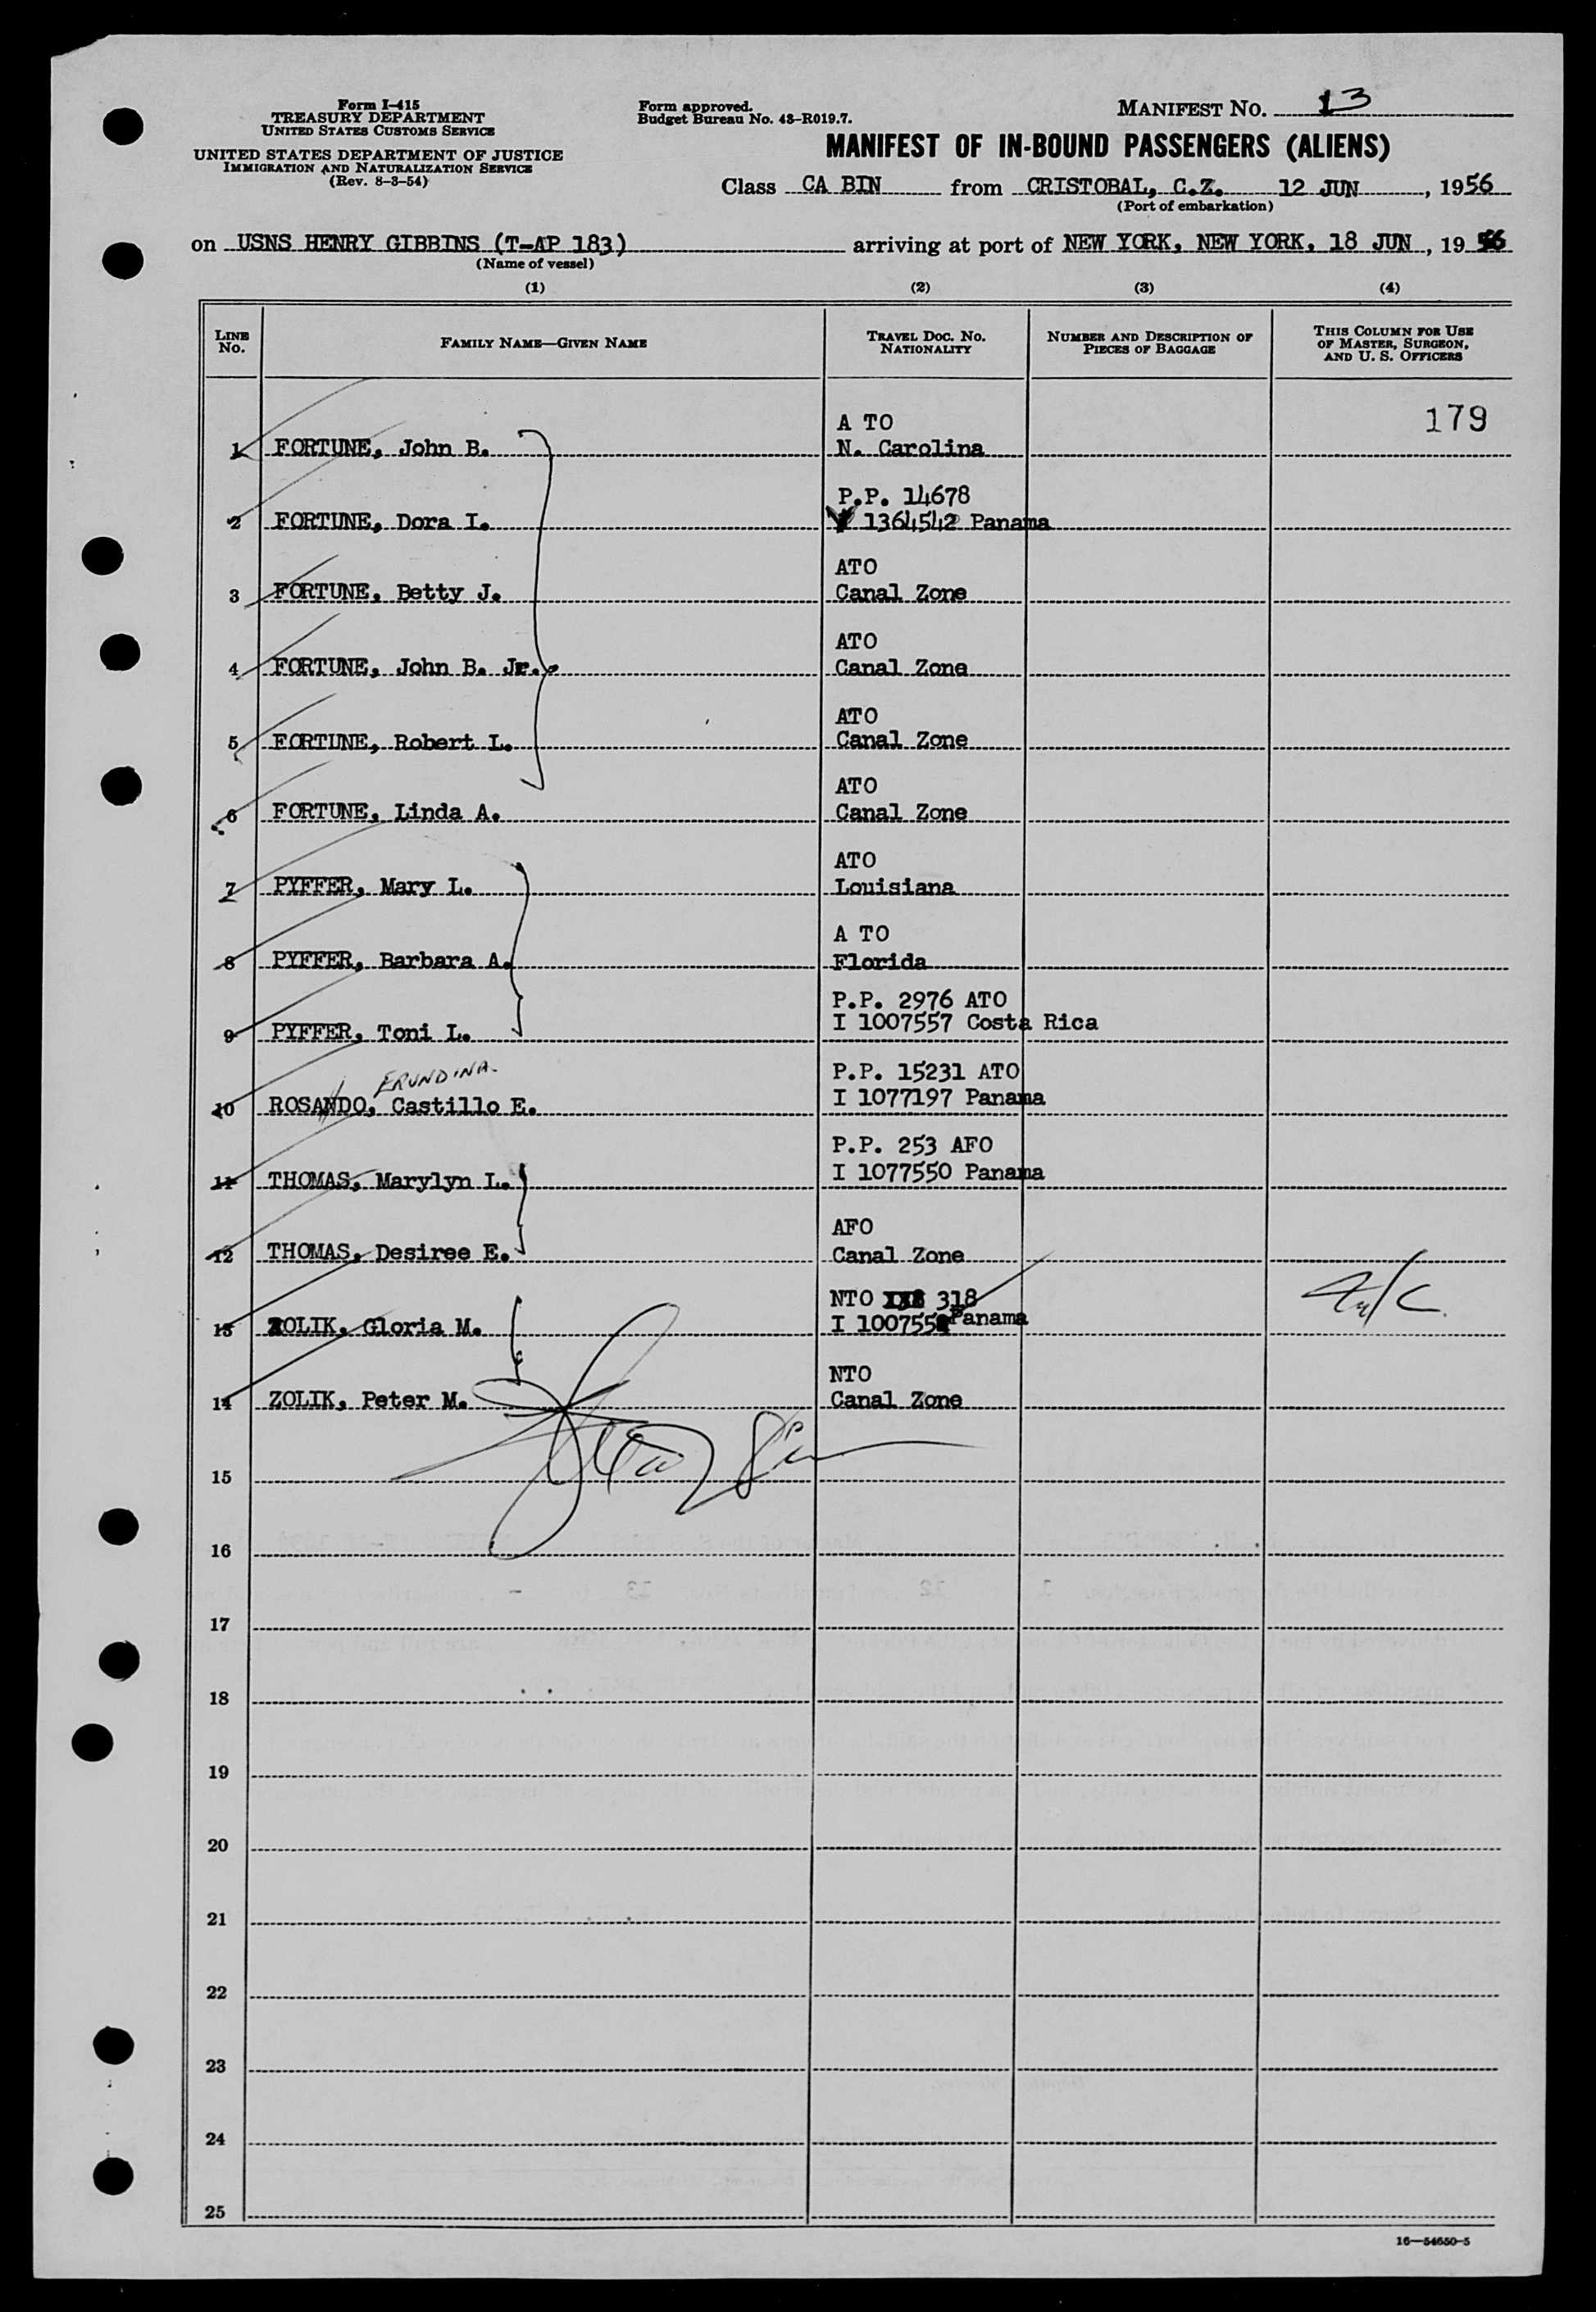 Form I-415
TREASURY DEPARTMENT
UNITED STATES CUSTOMS SERVICE
UNITED STATES DEPARTMENT OF JUSTICE
IMMIGRATION AND NATURALIZATION SERVICE
(Rev. 8-3-54)
Form approved.
Budget Bureau No. 43-R019.7.
MANIFEST NO. 13
MANIFEST OF IN-BOUND PASSENGERS (ALIENS)
Class CA BIN from CRISTOBAL, C.Z. 12 JUN, 1956
(Port of embarkation)
on USNS HENRY GIBBINS (T-AP 183) arriving at port of NEW YORK, NEW YORK, 18 JUN, 1956
(Name of vessel)
(1) (2) (3) (4)
LINE NO. FAMILY NAME—GIVEN NAME TRAVEL DOC. NO. NATIONALITY NUMBER AND DESCRIPTION OF PIECES OF BAGGAGE THIS COLUMN FOR USE OF MASTER, SURGEON, AND U. S. OFFICERS
A TO 179
1 FORTUNE, John B. N. Carolina
P.P. 14678
2 FORTUNE, Dora I. 1364542 Panama
ATO
3 FORTUNE, Betty J. Canal Zone
ATO
4 FORTUNE, John B. Jr. Canal Zone
ATO
5 FORTUNE, Robert L. Canal Zone
ATO
6 FORTUNE, Linda A. Canal Zone
ATO
7 PYFFER, Mary L. Louisiana
A TO
8 PYFFER, Barbara A. Florida
P.P. 2976 ATO
9 PYFFER, Toni L. I 1007557 Costa Rica
ERUNDINA. P.P. 15231 ATO
10 ROSANDO, Castillo E. I 1077197 Panama
P.P. 253 AFO
11 THOMAS, Marylyn L. I 1077550 Panama
AFO
12 THOMAS, Desiree E. Canal Zone
NTO 318
13 ZOLIK, Gloria M. I 100755 Panama
NTO
14 ZOLIK, Peter M. Canal Zone
15
16
17
18
19
20
21
22
23
24
25
16—54650-5